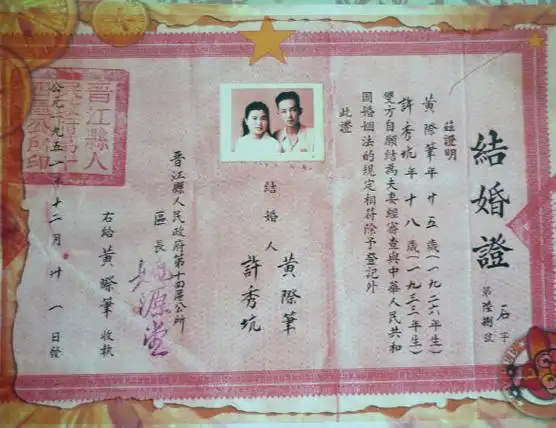 結婚證
石字
第陸捌號
茲證明
黃際筆年廿五歲(一九二六年生)
許秀坑年十八歲(一九三三年生)
雙方自願結為夫妻經審查與中華人民共和
國婚姻法的規定相符除予登記外
此證
結婚人
黃際筆
許秀坑
晋江縣人民政府第十四區公所
區長
右給黃際筆收執
公元一九五一年十二月廿一日發
晋江縣人